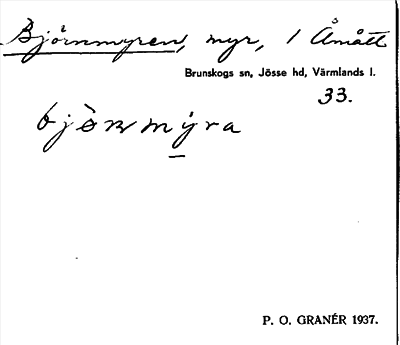 Björnmyren, myr, 1 Åmått
Brunskogs sn, Jösse hd, Värmlands l.
33.
bjö̀ʀnmýra
P. O. GRANÉR 1937.